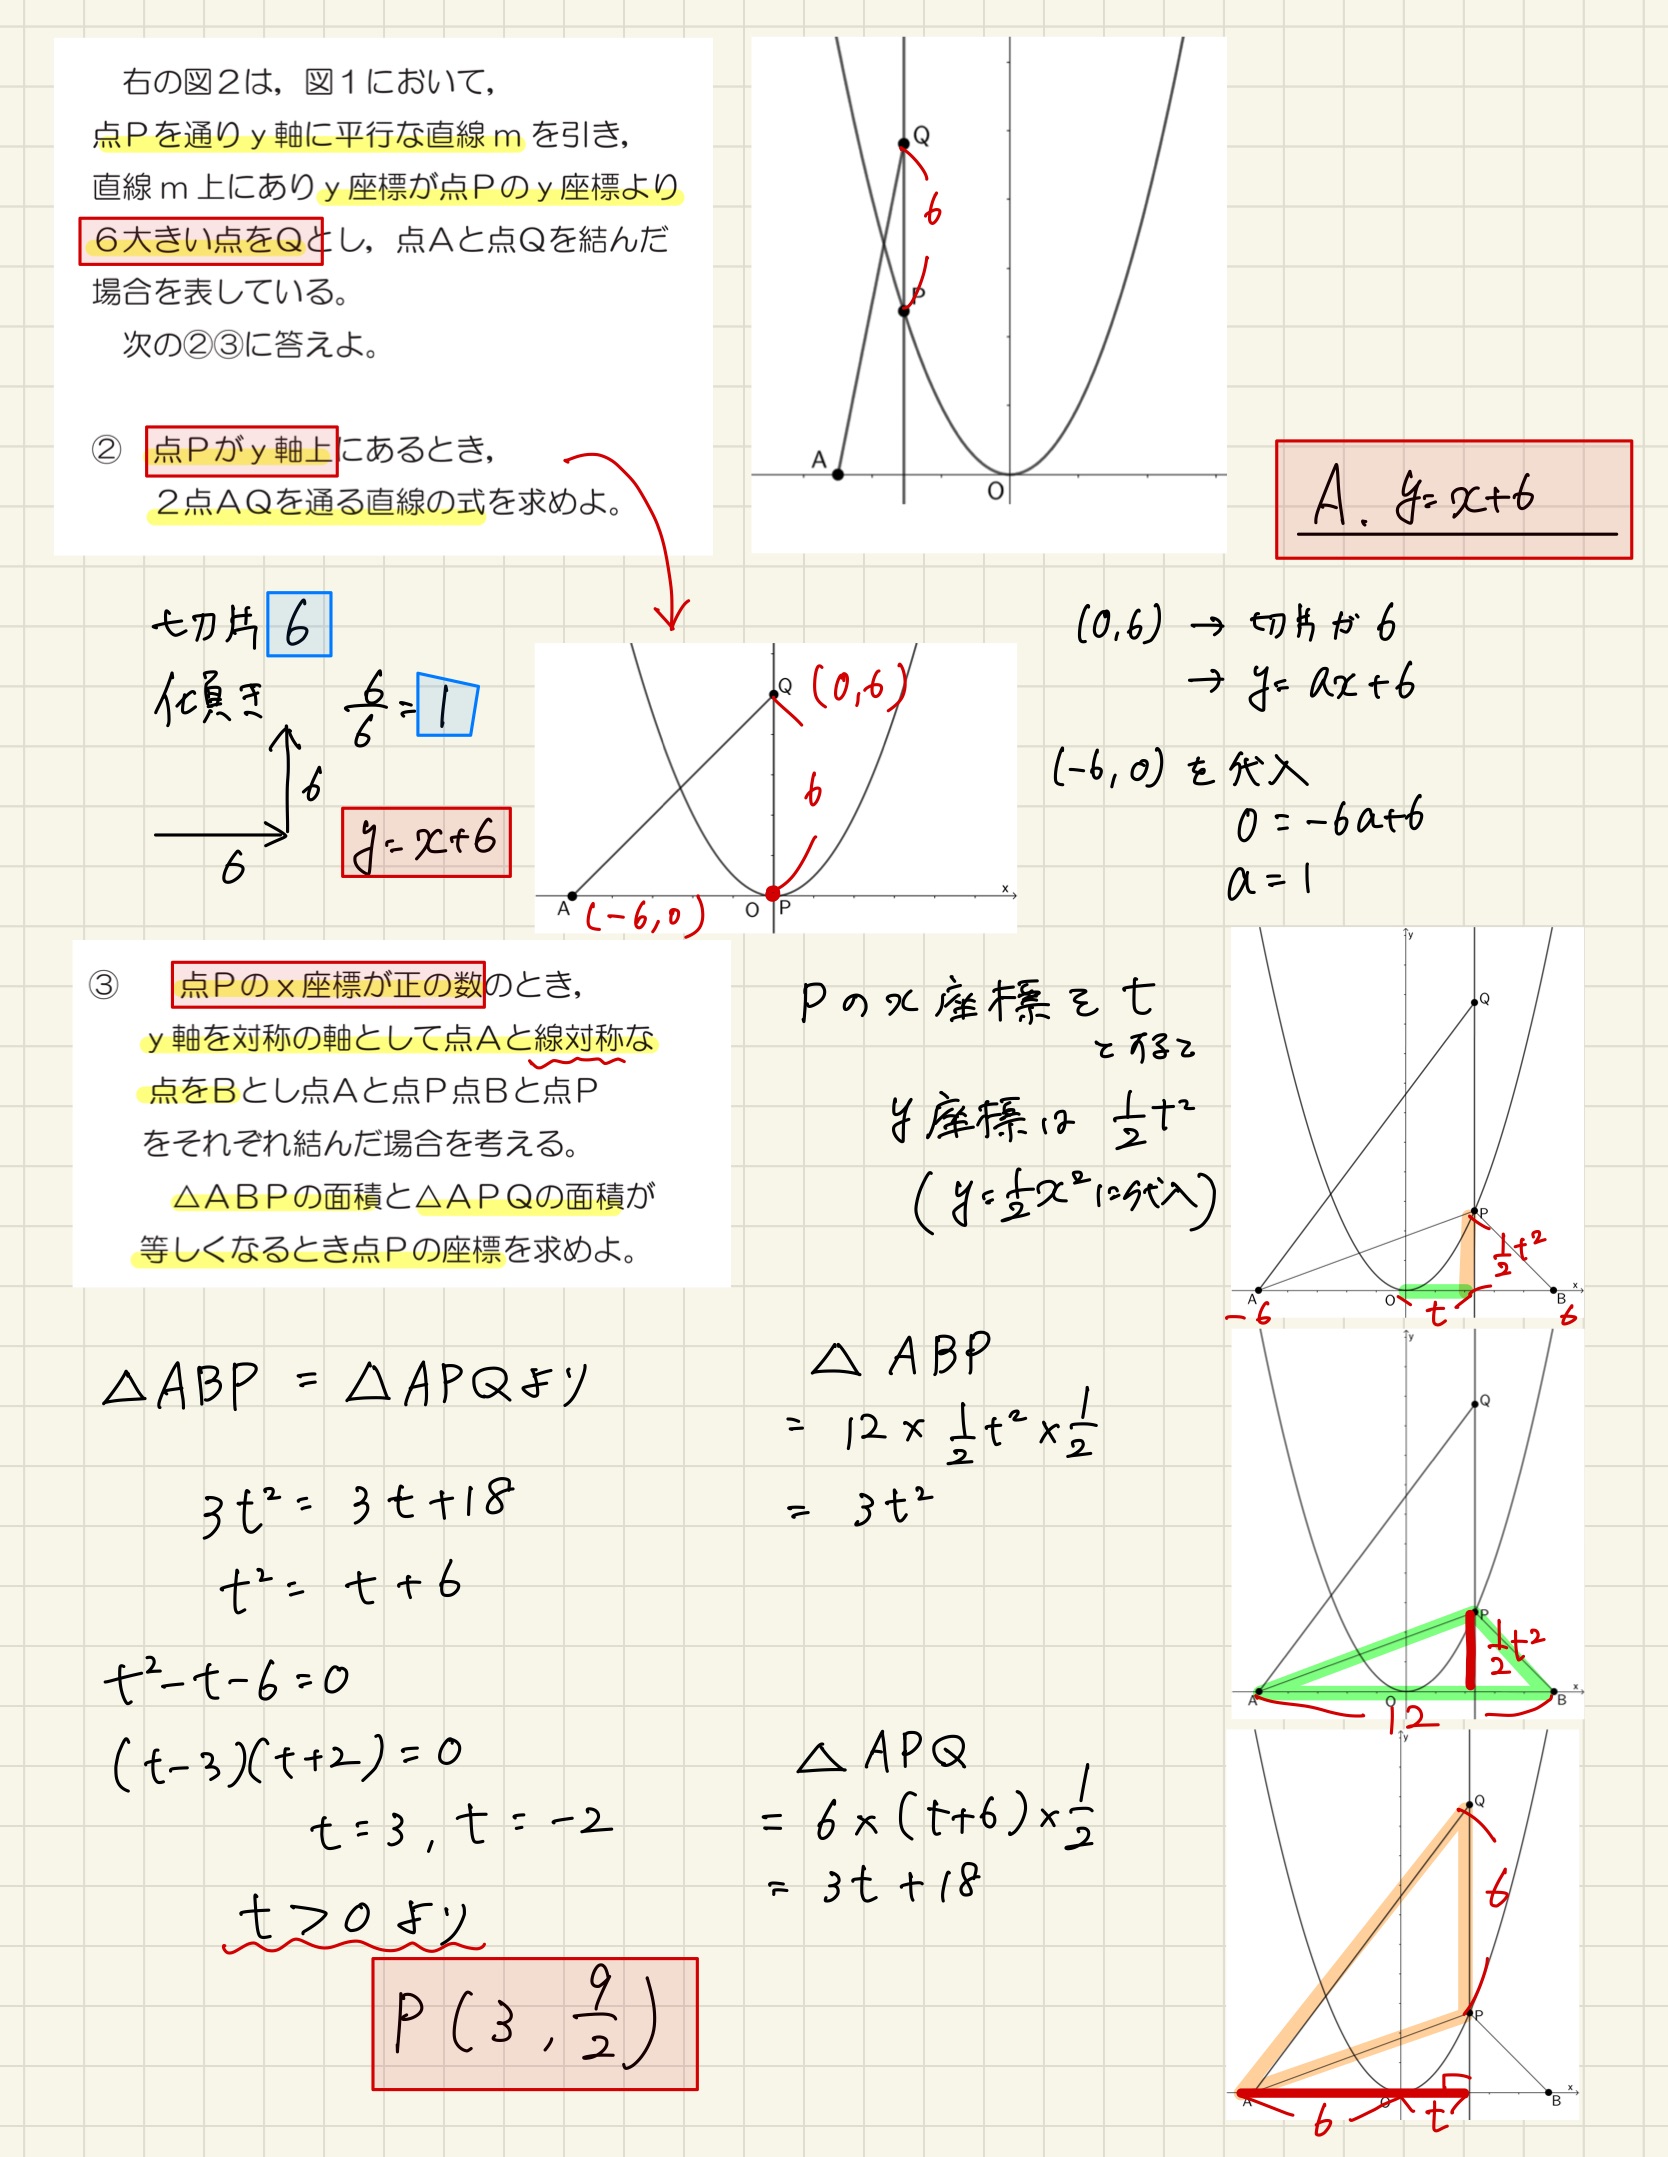 右の図２は，図１において，
点Ｐを通りｙ軸に平行な直線ｍを引き，
直線ｍ上にありｙ座標が点Ｐのｙ座標より
６大きい点をＱとし，点Ａと点Ｑを結んだ
場合を表している。
次の②③に答えよ。
② 点Ｐがｙ軸上にあるとき，
２点ＡＱを通る直線の式を求めよ。
Q
6
P
A
O
A. y=x+6
切片 6
傾き 6/6 = 1
6
6
y=x+6
Q (0,6)
6
A (-6,0) O P x
(0,6) → 切片が 6
→ y=ax+6
(-6,0) を代入
0=-6a+6
a=1
③ 点Ｐのｘ座標が正の数のとき，
ｙ軸を対称の軸として点Ａと線対称な
点をＢとし点Ａと点Ｐ点Ｂと点Ｐ
をそれぞれ結んだ場合を考える。
△ＡＢＰの面積と△ＡＰＱの面積が
等しくなるとき点Ｐの座標を求めよ。
Pのx座標をt
とすると
y座標は 1/2 t²
(y=1/2 x²に代入)
y
Q
P
1/2 t²
A O B x
-6 t 6
△ABP = △APQより
3t² = 3t+18
t² = t+6
t²-t-6=0
(t-3)(t+2)=0
t=3, t=-2
t>0より
P(3, 9/2)
△ABP
= 12 × 1/2 t² × 1/2
= 3t²
y
Q
P
1/2 t²
A O B x
12
△APQ
= 6×(t+6)×1/2
= 3t+18
y
Q
6
P
A O B x
6 t